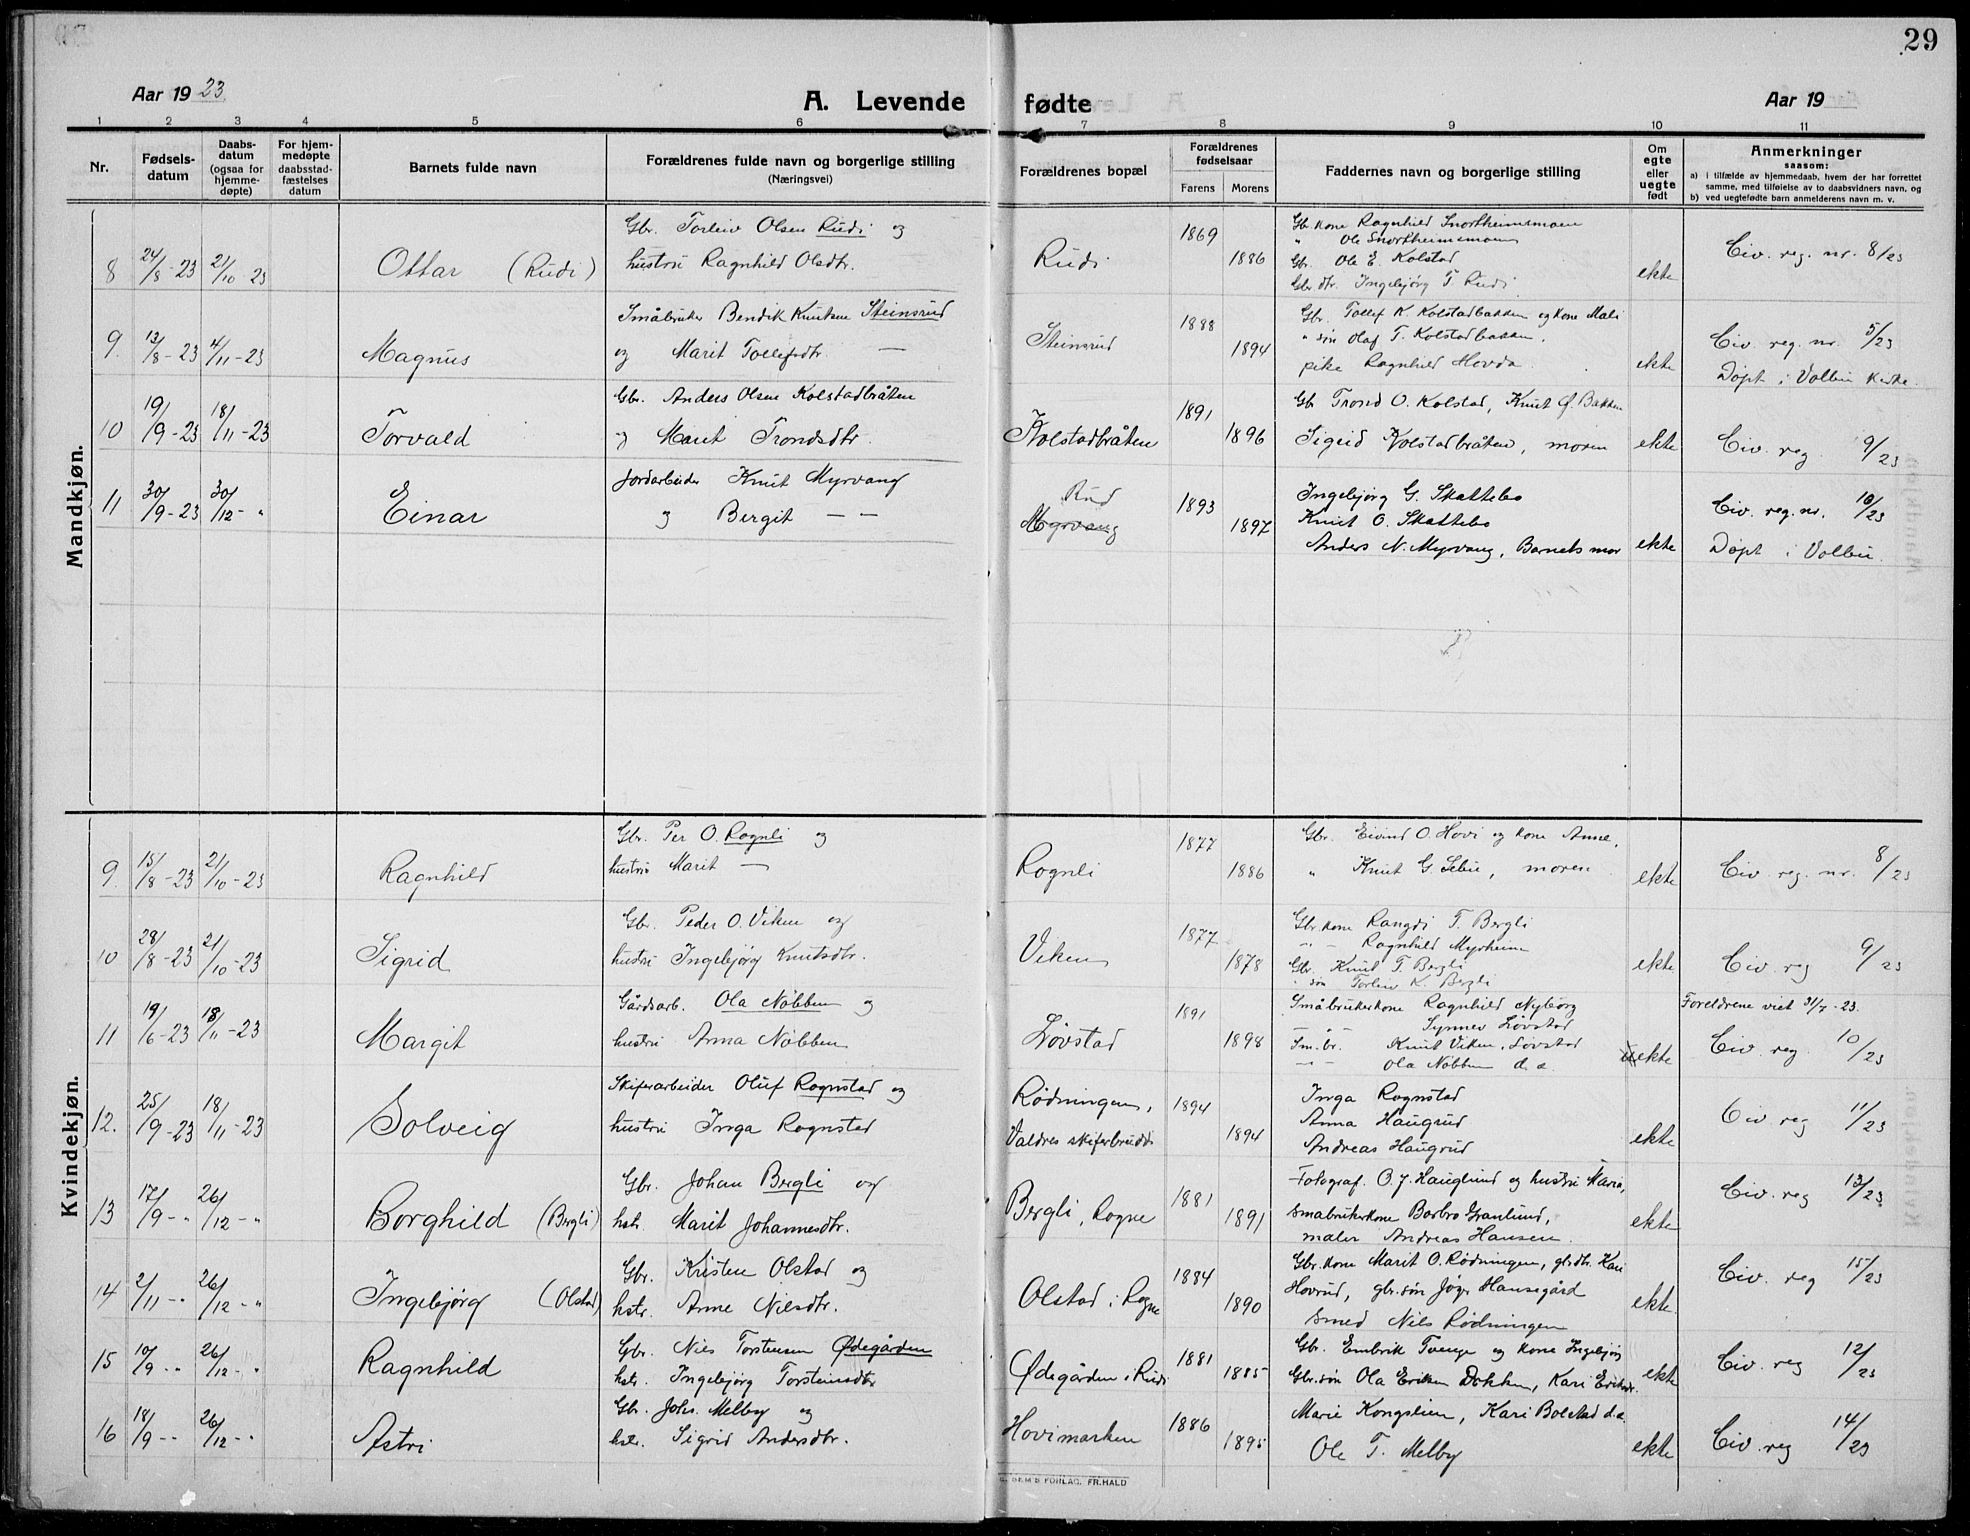 29
Aar 1923
A. Levende fødte
Aar 19
1 2 3 4 5 6 7 8 9 10 11
Nr.
Fødsels-
datum
Daabs-
datum
(ogsaa for
hjemme-
døpte)
For hjem-
medøpte
daabsstad-
fæstelses
datum
Barnets fulde navn
Forældrenes fulde navn og borgerlige stilling
(Næringsvei)
Forældrenes bopæl
Forældrenes
fødselsaar
Farens Morens
Faddernes navn og borgerlige stilling
Om
egte
eller
uegte
født
Anmerkninger
saasom:
a) i tilfælde av hjemmedaab, hvem der har forrettet
samme, med tilføielse av to daabsvidners navn, og
b) ved uegtefødte barn anmelderens navn m. v.
Mandkjøn.
8 24/8-23 21/10-23 Ottar (Rudi)
Gbr. Torleiv Olsen Rudi og
hustru Ragnhild Olsdtr.
Rudi 1869 1886
Gb.kone Ragnhild Snortheimsmoen
" Ole Snortheimsmoen
Gb. Ole E. Kolstad
Gbr dtr. Ingebjørg T. Rudi
ekte
Civ. reg. nr. 8/23
9. 12/8-23 4/11-23 Magnus
Småbruker Bendik Knutsen Steinsrud
og Marit Tollefsdtr. —
Steinsrud 1888 1894
Gb. Tollef K. Kolstadbakken og kone Mali
" søn Olaf T. Kolstadbakken.
pike Ragnhild Hovda.
ekte
Civ. reg. nr. 5/23
Døpt i Volbu kirke.
10 19/9-23 18/11-23 Torvald
Gbr. Anders Olsen Kolstadbråten
og Marit Trondsdtr.
Kolstadbråten 1891 1896
Gb Trond O. Kolstad, Knut Ø. Bakken
Sigrid Kolstadbråten, moren
ekte
Civ. reg. 9/23
11 30/9-23 30/12-" Einar
Jordarbeider Knut Myrvang
og Bergit — —
Rud
Myrvang 1893 1897
Ingebjørg G. Skattebo
Knut O. Skattebo
Anders N. Myrvang, Barnets mor
ekte
Civ. reg. nr. 10/23
Døpt i Volbu.
Kvindekjøn.
9. 15/8-23 21/10-23 Ragnhild
Gbr. Per O. Rognli og
hustru Marit —
Rognli 1877 1886
Gbr. Eivind O. Hovi og kone Anne,
" Knut G. Sebu, moren
ekte
Civ. reg. nr. 8/23
10 28/8-23 21/10-23 Sigrid
Gbr. Peder O. Viken og
hustru Ingebjørg Knutsdtr.
Viken 1877 1878
Gbr kone Rangdi T. Bergli
" - Ragnhild Myrheim
Gbr. Knut T. Bergli
" søn Torleiv K. Bergli
ekte
Civ. reg 9/23
11 19/6-23 18/11-23 Margit
Gårdsarb. Ola Nøbben og
hustru Anna Nøbben
Løvstad 1891 1898
Småbrukerkone Ragnhild Nyborg
— " — Synnev Løvstad
Sm.br. Knut Viken, Løvstad
— " — Ola Nøbben d.e.
uekte
Foreldrene viet 31/7-23.
Civ. reg. 10/23
12. 25/9-23 18/11-23 Solveig
Skiferarbeider Oluf Rognstad og
hustru Inga Rognstad
Rødningen,
Valdres skiferbrudd 1894 1894
Inga Rognstad
Anna Haugrud
Andreas Haugrud
ekte
Civ reg 11/23
13 17/9-" 26/12-" Borghild (Bergli)
Gbr. Johan Bergli og
hstr. Marit Johannesdtr.
Bergli, Rogne 1881 1891
Fotograf. O. J. Hauglund og hustru Marie,
småbrukerkone Barbro Granlund,
maler Andreas Hansen.
ekte
Civ. reg 13/23
14 2/11-" 26/12-" Ingebjørg (Olstad)
Gbr. Kristen Olstad og
hstr. Anne Nilsdtr.
Olstad i Rogne 1884 1890
Gbr.kone Marit O. Rødningen, gb.dtr. Kari
Hovrud, gbr.søn Jøgr Hansegård
Smed Nils Rødningen
ekte
Civ. reg 15/23
15 10/9 -" 26/12-" Ragnhild
Gbr. Nils Torstensen Ødegården
hstr. Ingebjørg Torsteinsdtr
Ødegården i Rudi 1881 1885
Gbr. Embrik Tvenge og kone Ingebjørg
Gbr.søn Ola Eriksen Dokken, Kari Eriksdr.
ekte
Civ. reg 12/23
16 18/9 -" 26/12-" Astri
Gbr. Johs. Melby og
hstr. Sigrid Andersdtr.
Hovimarken 1886 1895
Marie Kongslien, Kari Bolstad d.e.
Ole T. Melby
ekte
Civ. reg 14/23
SEM'S FORLAG. FR.HALD